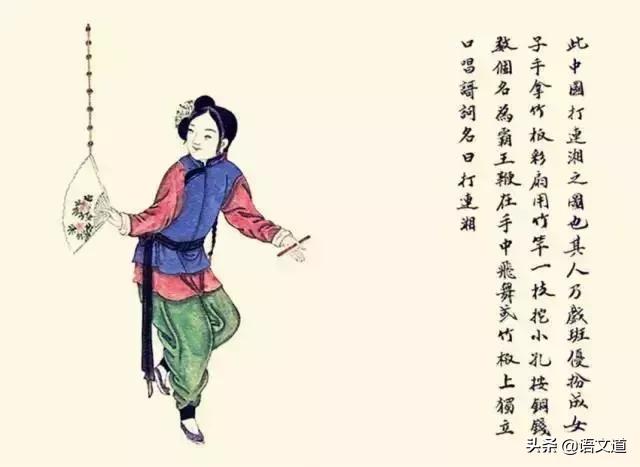 此中國打連湘之圖也其人乃戲班優扮成女
子手拿竹板彩扇用竹竿一枝挖小孔按銅錢
數個名為霸王鞭在手中飛舞或竹板上獨立
口唱謌詞名曰打連湘
头条 @语文道